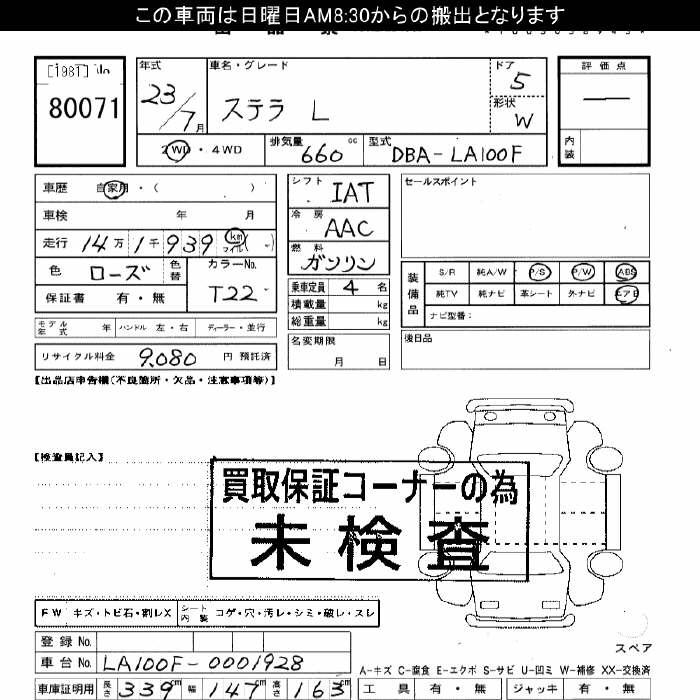 この車両は日曜日AM8:30からの搬出となります
[1981] No
80071
年式 23/7月
車名・グレード ステラ L
ドア 5
形状 W
評価点 —
内装
2WD・4WD
排気量 660 cc
型式 DBA-LA100F
車歴 自家用・( )
車検 年 月
走行 14万1千939 km マイル( )
色 ローズ 色替
カラーNo. T22
保証書 有・無
モデル年式 年 ハンドル 左・右 ディーラー・並行
リサイクル料金 9,080 円 預託済
シフト IAT
冷房 AAC
燃料 ガソリン
乗車定員 4 名
積載量 kg
総重量 kg
名変期限 月 日
セールスポイント
装備品 S/R 純A/W P/S P/W ABS
純TV 純ナビ 革シート 外ナビ エアB
ナビ型番:
後日品
【出品店申告欄(不良箇所・欠品・注意事項等)】
【検査員記入】
買取保証コーナーの為
未検査
FW キズ・トビ石・割レX シート内装 コゲ・穴・汚レ・シミ・破レ・スレ
登録No.
車台No. LA100F-0001928
車庫証明用 長さ 339cm 幅 147cm 高さ 163cm
スペア
A-キズ C-腐食 E-エクボ S-サビ U-凹ミ W-補修 XX-交換済
工具 有・無 ジャッキ 有・無